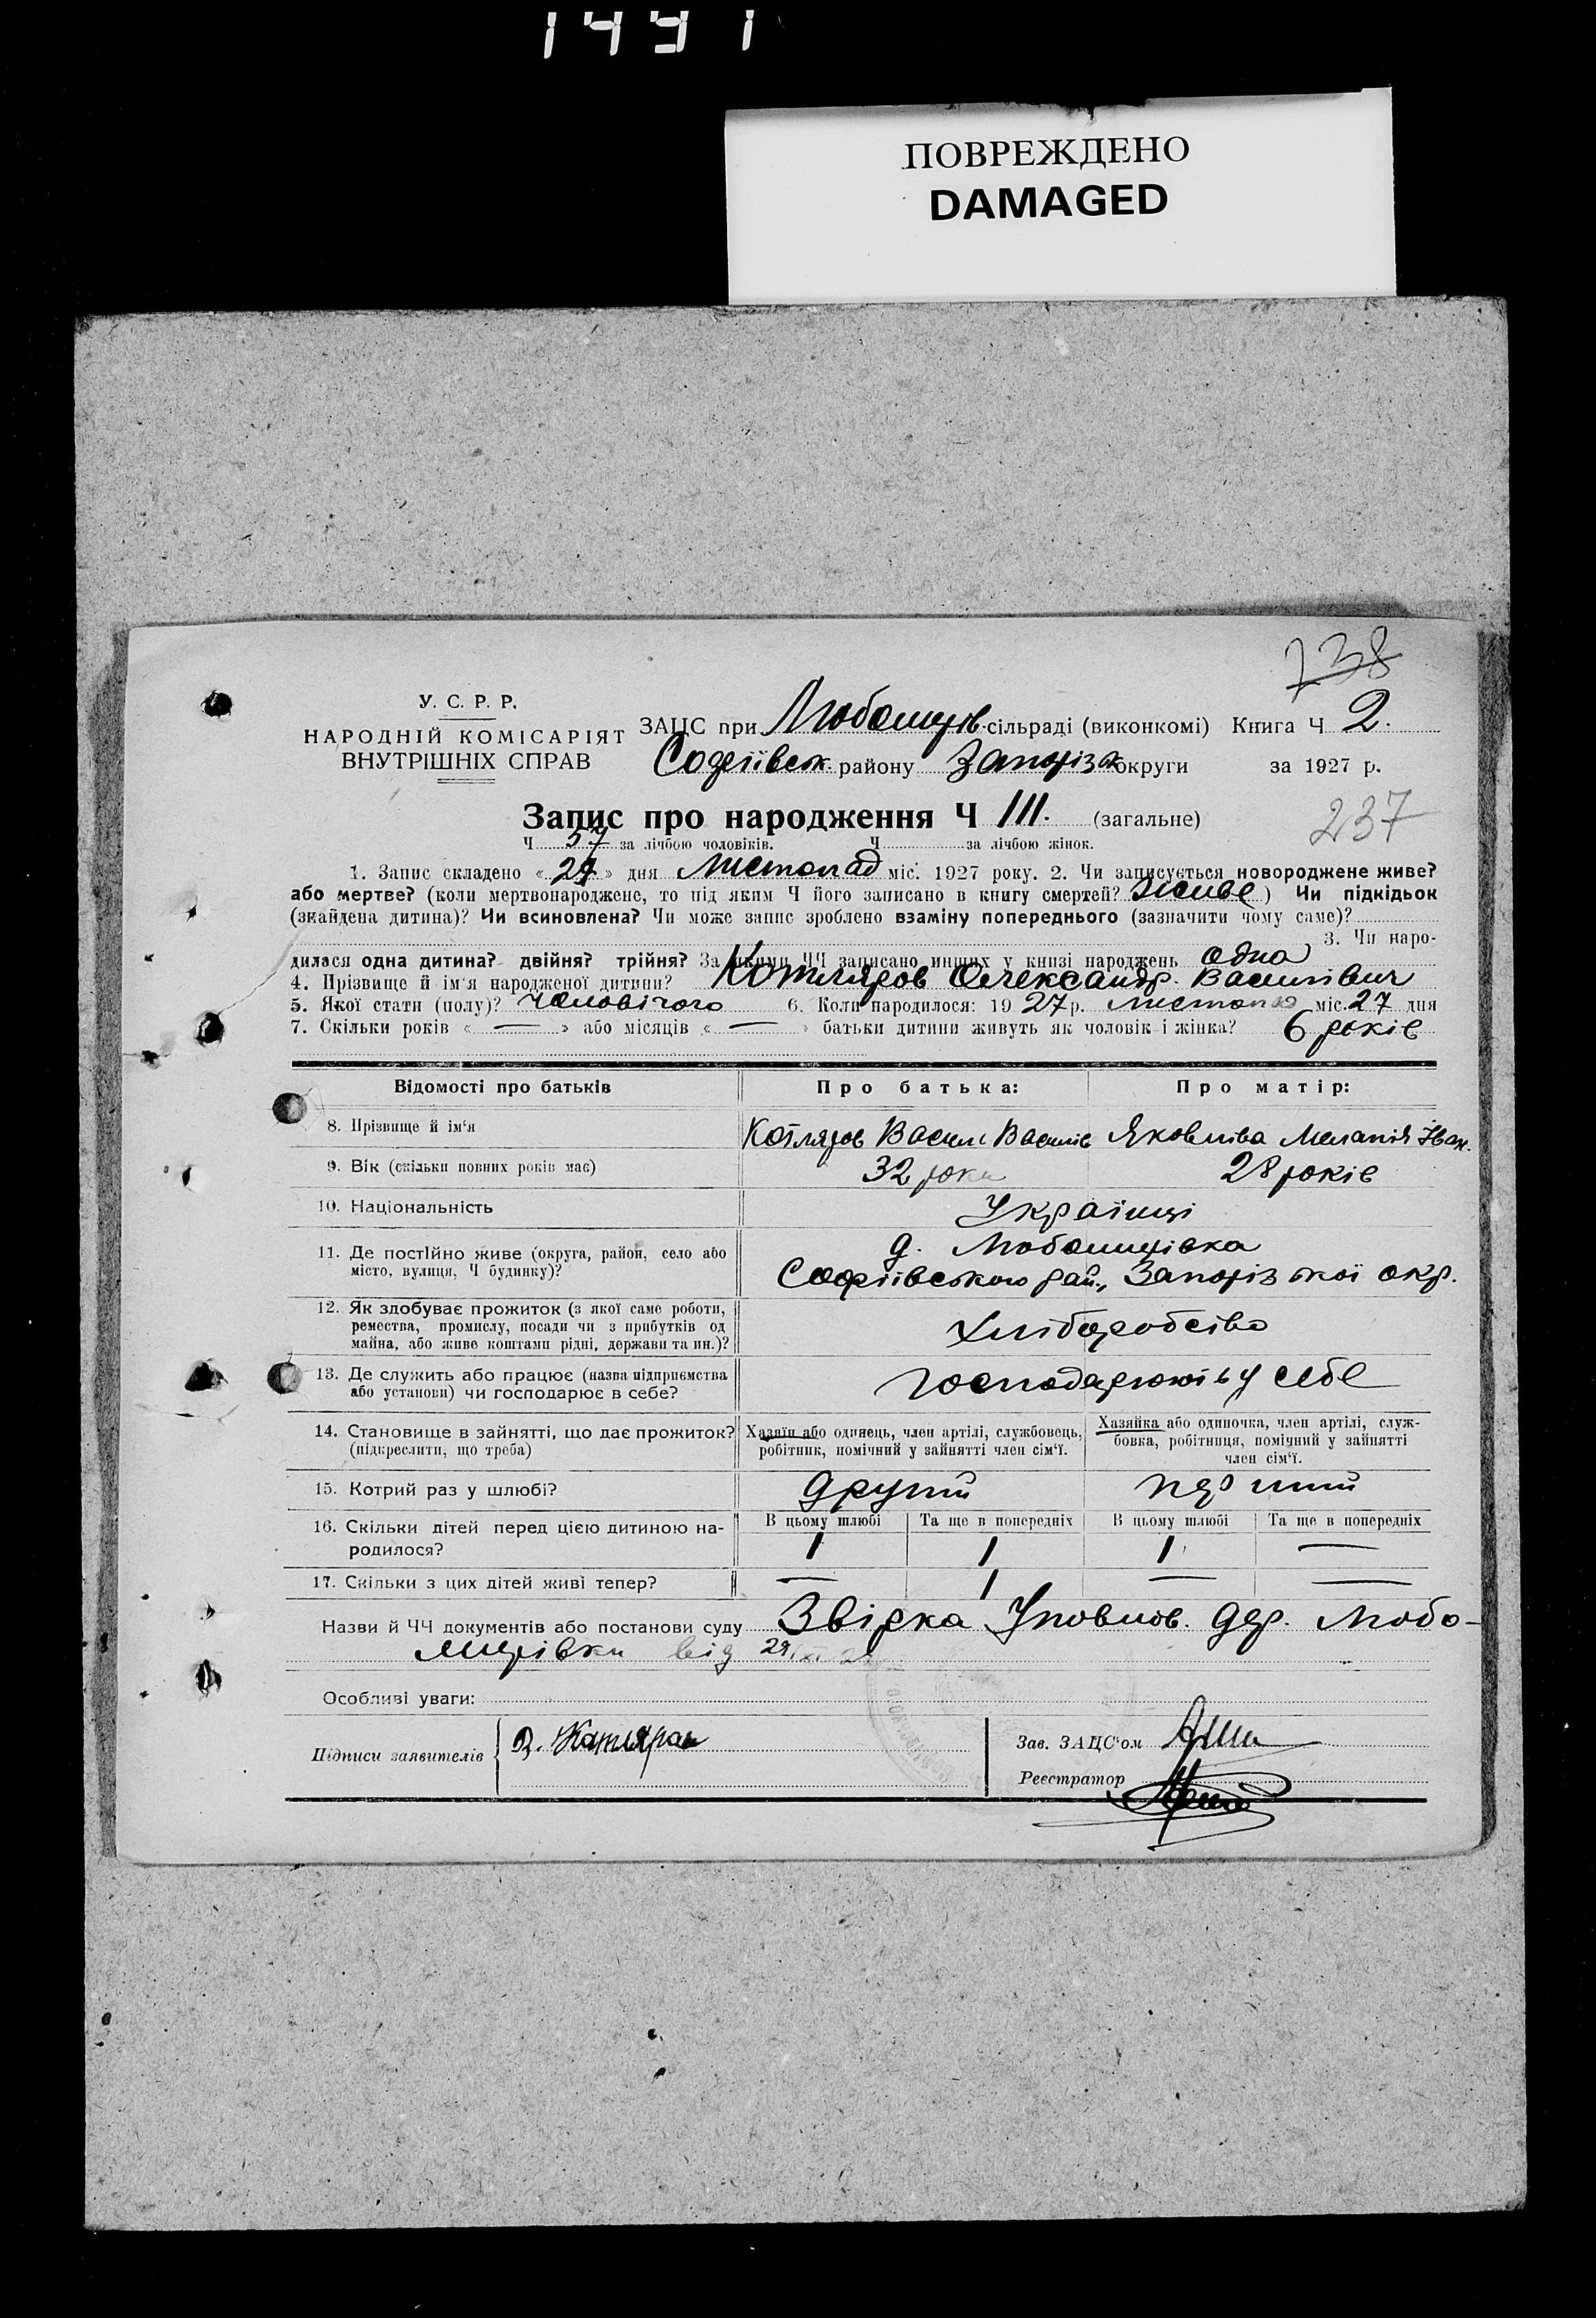 1491
ПОВРЕЖДЕНО
DAMAGED
738
У. С. Р. Р.
НАРОДНІЙ КОМІСАРІЯТ
ВНУТРІШНІХ СПРАВ
ЗАЦС при Любомирів сільраді (виконкомі) Книга Ч 2.
Софіївськ. району Запоріз округи за 1927 р.
Запис про народження Ч 111. (загальне)
237
Ч 57 за лічбою чоловіків. Ч за лічбою жінок.
1. Запис складено «29» дня Листопад міс. 1927 року. 2. Чи записується новороджене живе?
або мертве? (коли мертвонароджене, то під яким Ч його записано в книгу смертей? живе) Чи підкідьок
(знайдена дитина)? Чи всиновлена? Чи може запис зроблено взаміну попереднього (зазначити чому саме)?
3. Чи наро-
дилася одна дитина? двійня? трійня? За якими ЧЧ записано инших у книзі народжень одна
4. Прізвище й ім'я народженої дитини? Котляров Олександр. Васильович
5. Якої стати (полу)? чоловічого 6. Коли народилося: 1927 р. листопад міс. 27 дня
7. Скільки років « — » або місяців « — » батьки дитини живуть як чоловік і жінка? 6 років
Відомості про батьків Про батька: Про матір:
8. Прізвище й ім'я Котляров Василь Васильів Яковліва Меланія Іван.
9. Вік (скільки повних років має) 32 роки 28 років
10. Національність Українці
11. Де постійно живе (округа, район, село або
місто, вулиця, Ч будинку)?
д. Любомирівка
Софіївського рай., Запорізької окр.
12. Як здобуває прожиток (з якої саме роботи,
ремества, промислу, посади чи з прибутків од
майна, або живе коштами рідні, держави та ин.)?
Хліборобство
13. Де служить або працює (назва підприємства
або установи) чи господарює в себе?
господарюють у себе
14. Становище в зайнятті, що дає прожиток?
(підкреслити, що треба)
Хазяїн або одинець, член артілі, службовець,
робітник, помічний у зайнятті член сім'ї.
Хазяйка або одиночка, член артілі, служ-
бовка, робітниця, помічний у зайнятті
член сім'ї.
15. Котрий раз у шлюбі? другий перший
16. Скільки дітей перед цією дитиною на-
родилося?
В цьому шлюбі Та ще в попередніх В цьому шлюбі Та ще в попередніх
1 1 1 —
17. Скільки з цих дітей живі тепер? — 1 — —
Назви й ЧЧ документів або постанови суду Звірка Уповнов. дер. Любо-
мирівки від 29/XI
Особливі уваги:
Підписи заявителів В. Котляров
Зав. ЗАЦС'ом
Реєстратор